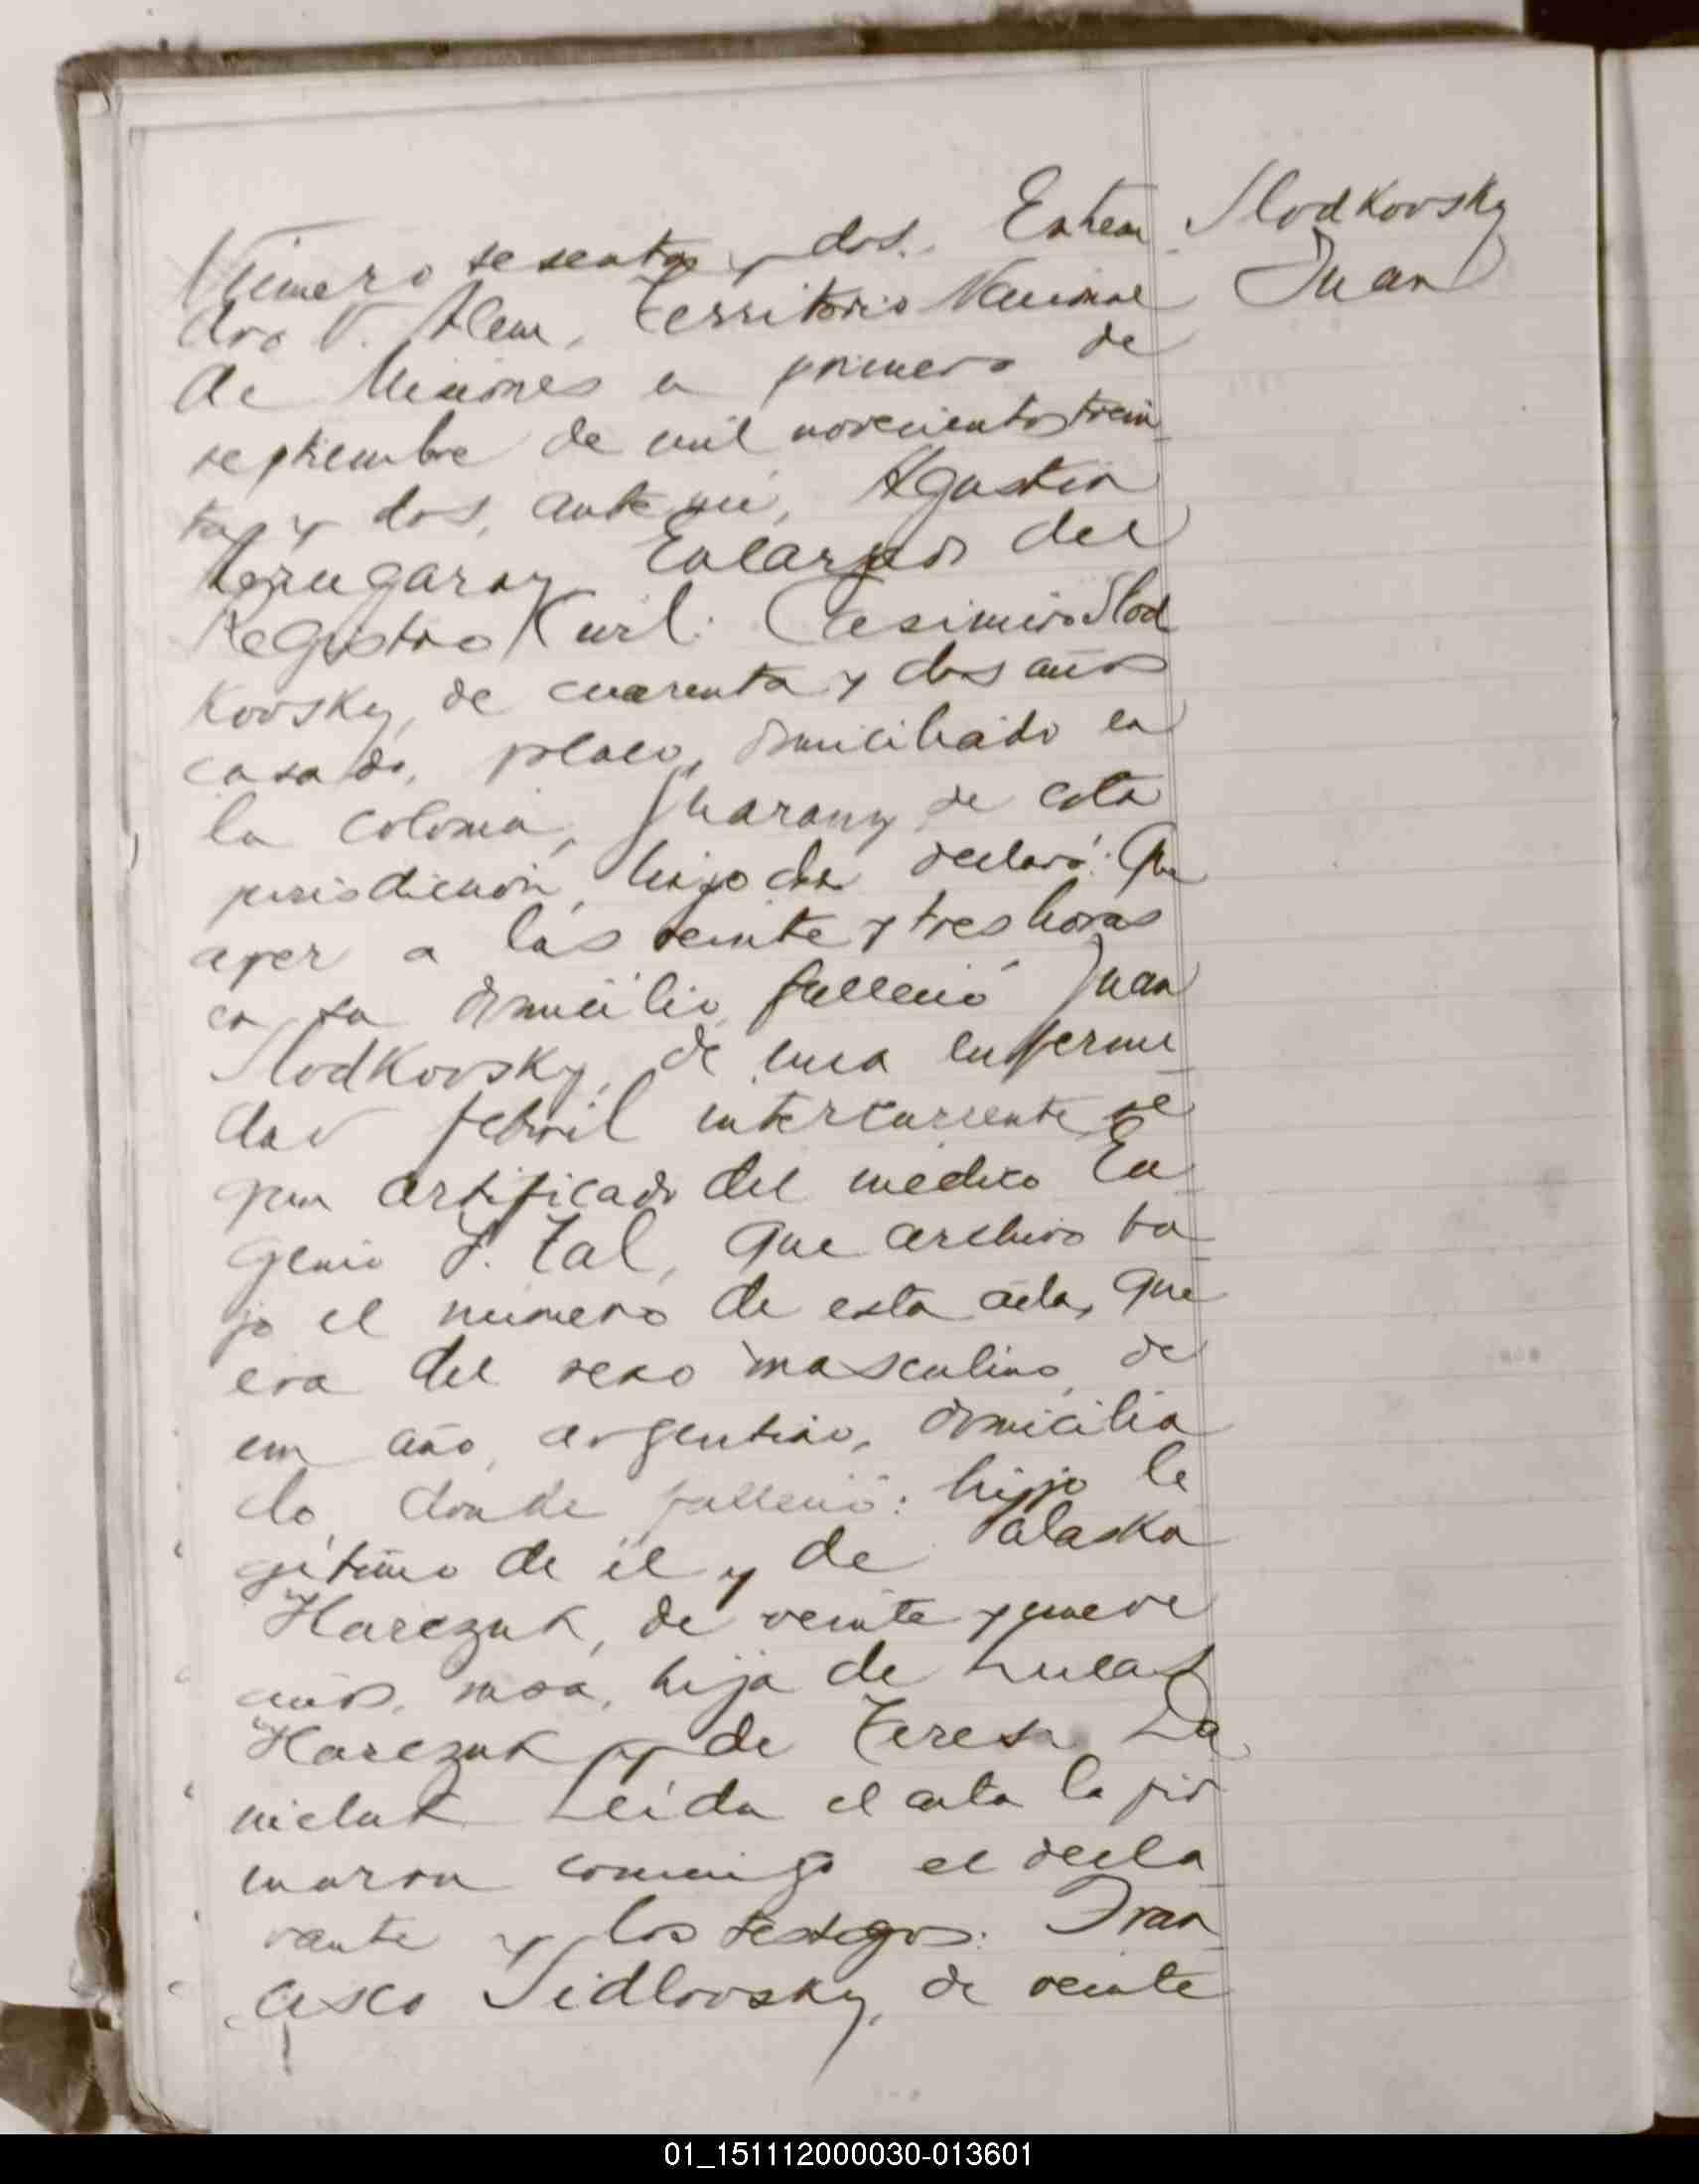 Slodkovsky
Juan
Número sesenta y dos. En Lean
dro N. Alem, Territorio Nacional
de Misiones a primero de
septiembre de mil novecientos trein
ta y dos, ante mi, Agustin
Encargado del
Registro Civil: Casimiro Slod
kovsky, de cuarenta y dos años
casado, polaco, domiciliado en
la colonia, Guarany de esta
jurisdicción, declaró: Que
ayer a las veinte y tres horas
en su domicilio falleció Juan
Slodkovsky, de una enferme
dad febril intercurrente, se
gun certificado del médico Eu
genio F. Zal, que archivo ba
jo el número de esta acta, que
era del sexo masculino, de
un año, argentino, domicilia
do donde falleció: hijo le
gítimo de él y de Palaska
Harczuk, de veinte y nueve
años, rusa, hija de Lucas
Harczuk y de Teresa Da
nieluk Leída el acta la fir
maron conmigo el decla
rante y los testigos: Fran
cisco Sidlovsky, de veinte
01_151112000030-013601